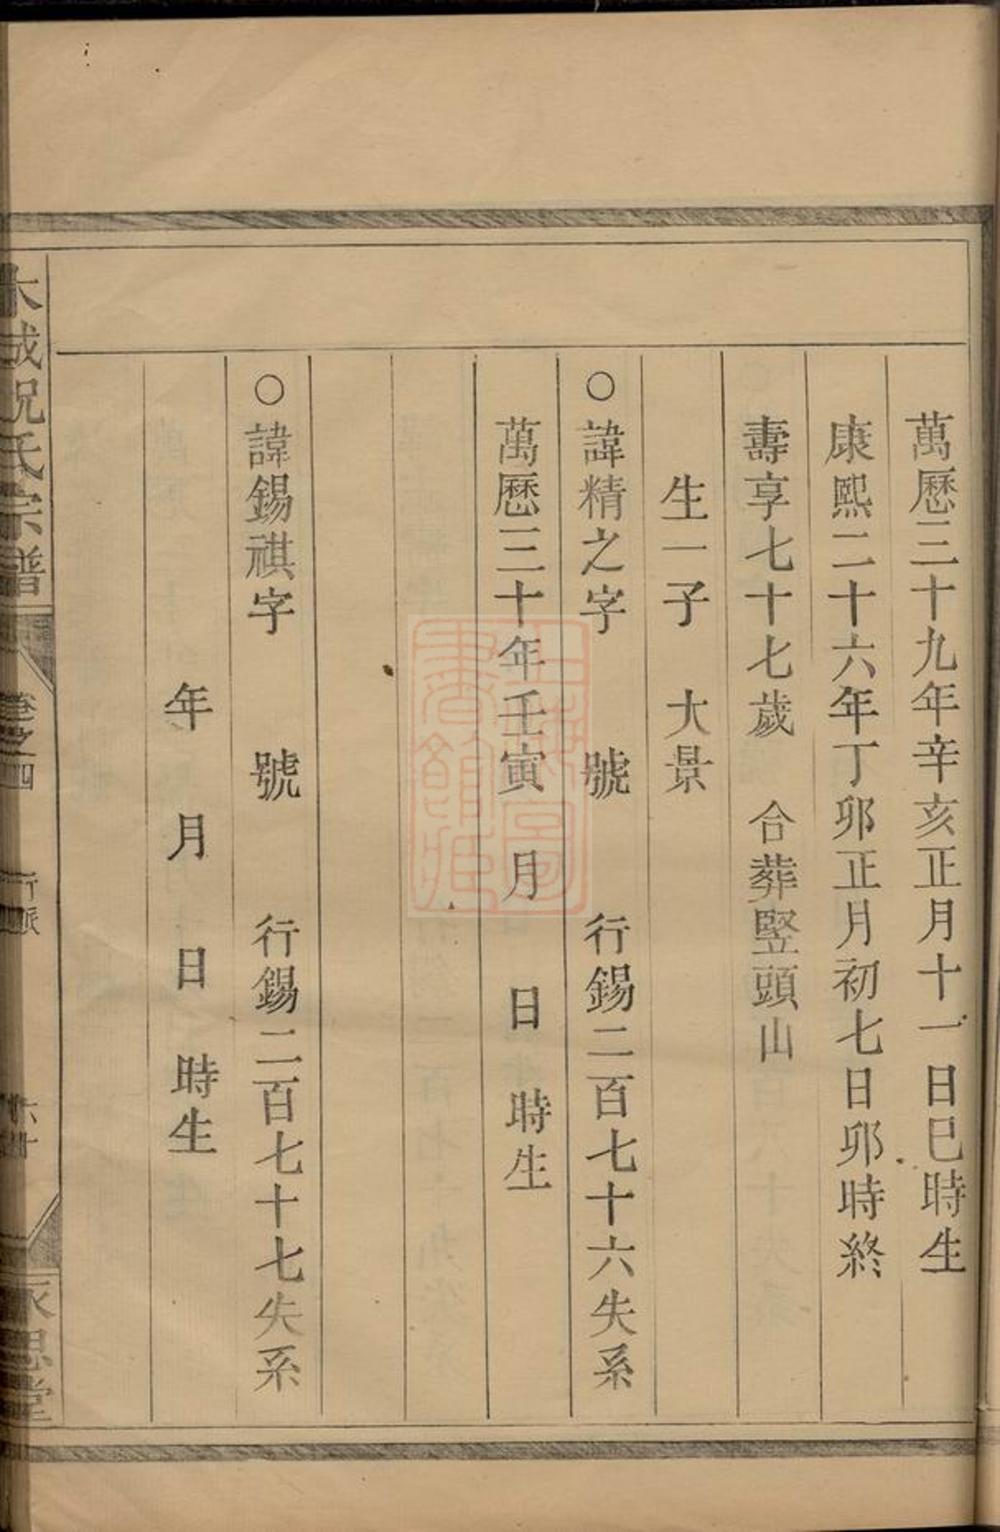 萬曆三十九年辛亥正月十一日巳時生
康熙二十六年丁卯正月初七日卯時終
壽享七十七歲 合葬竪頭山
生一子 大景
○諱精之字 號 行錫二百七十六失系
萬曆三十年壬寅 月 日 時生
○諱錫祺字 號 行錫二百七十七失系
年 月 日 時生
大成祝氏宗譜 卷之四 永思堂
上海圖書館藏